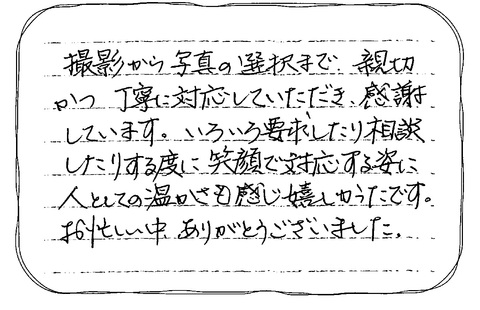 撮影から写真の選択まで、親切
かつ 丁寧に対応していただき、感謝
しています。いろいろ要求したり相談
したりする度に 笑顔で対応する姿に
人としての温かさも感じ嬉しかったです。
お忙しい中 ありがとうございました。